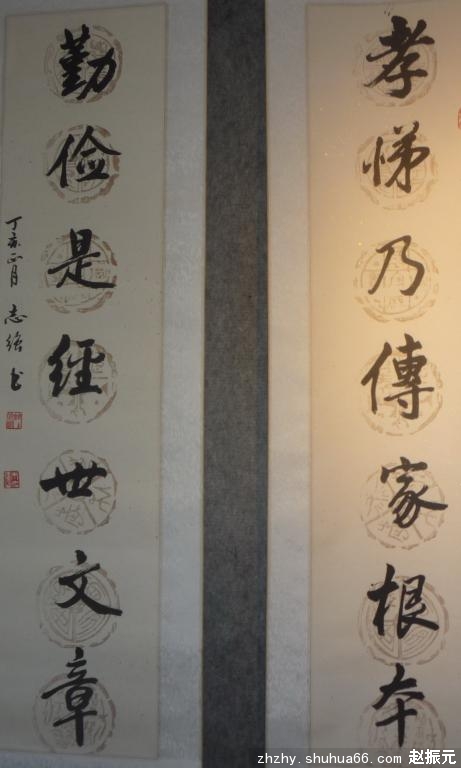 孝悌乃傳家根本
勤俭是經世文章
丁亥正月 志强书
zhzhy.shuhua66.com 赵振元